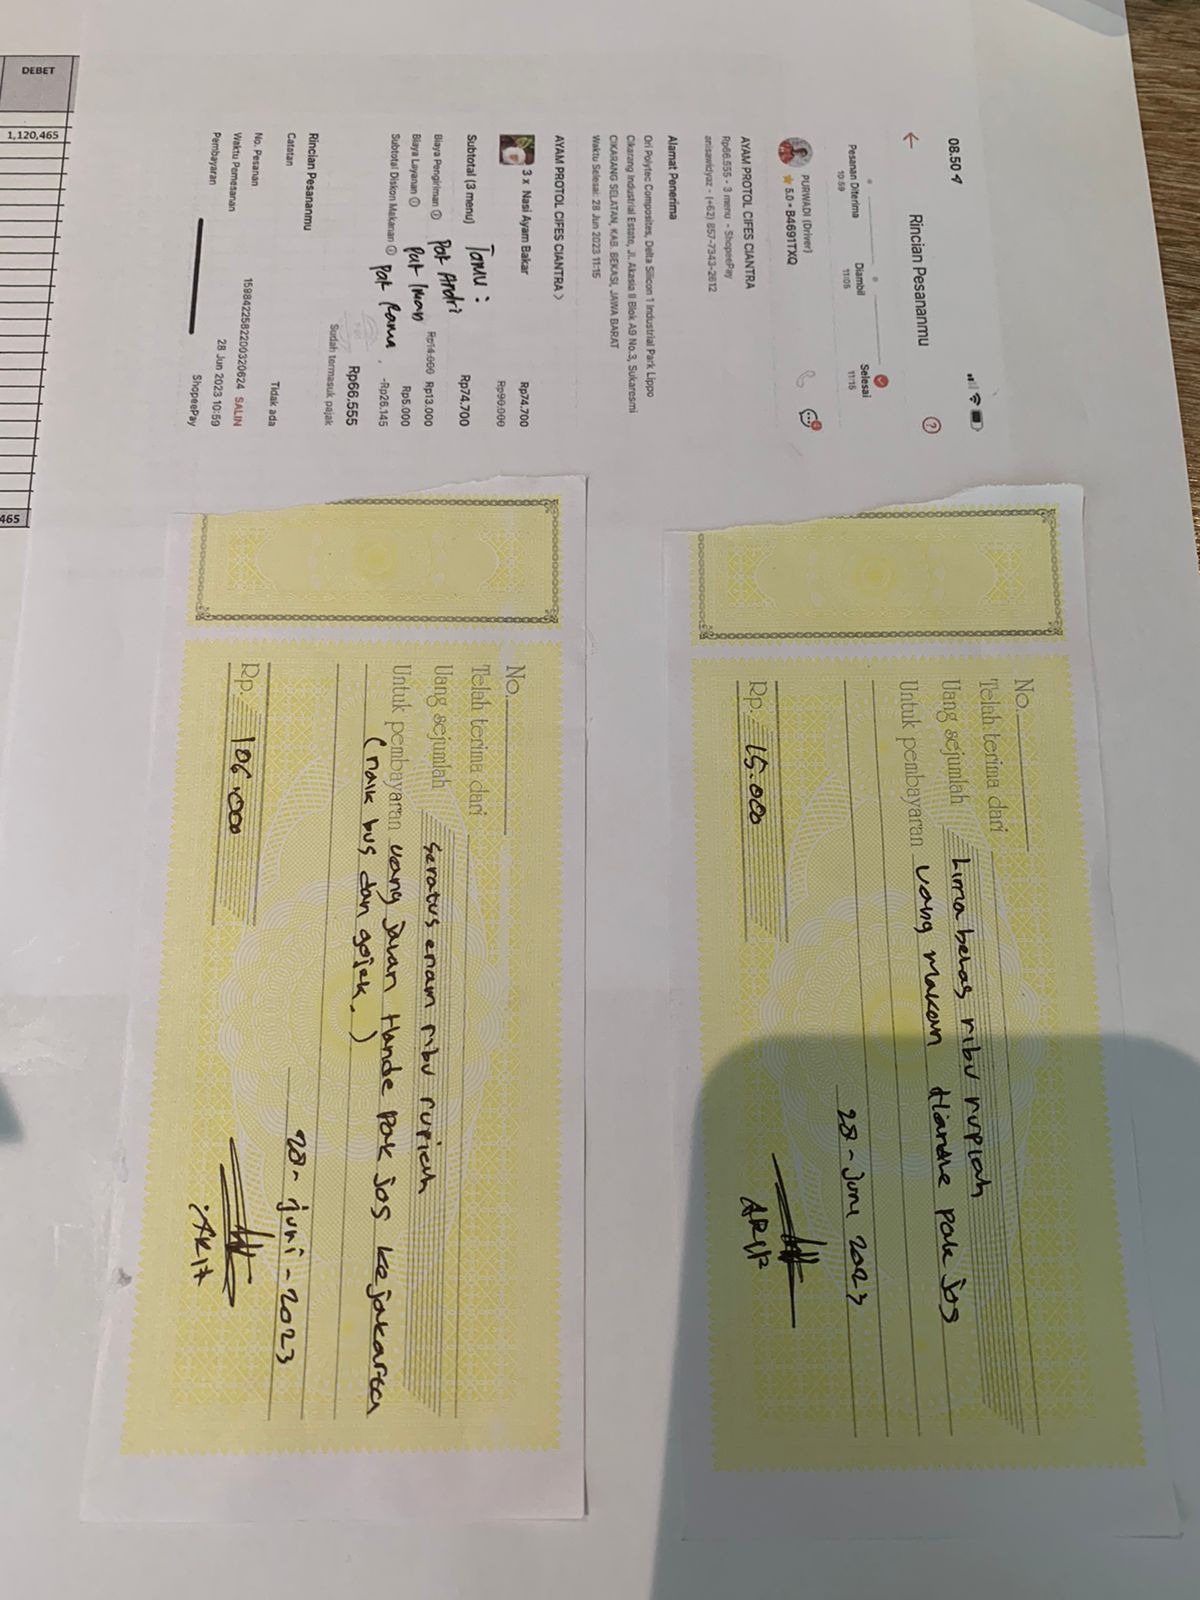 DEBET
1,120,465
465
08.50
Rincian Pesananmu
Pesanan Diterima
10:59
Diambil
11:05
Selesai
11:15
PURWADI (Driver)
5.0 • B4691TXQ
AYAM PROTOL CIFES CIANTRA
Rp66.555 - 3 menu - ShopeePay
anisawidyaz - (+62) 857-7343-2612
Alamat Penerima
Ori Polytec Composites, Delta Silicon 1 Industrial Park Lippo
Cikarang Industrial Estate, Jl. Akasia II Blok A9 No.3, Sukaresmi
CIKARANG SELATAN, KAB. BEKASI, JAWA BARAT
Waktu Selesai: 28 Jun 2023 11:15
AYAM PROTOL CIFES CIANTRA >
3 x Nasi Ayam Bakar
Rp74.700
Rp90.000
Subtotal (3 menu) Rp74.700
Biaya Pengiriman Rp14.000 Rp13.000
Biaya Layanan Rp5.000
Subtotal Diskon Makanan -Rp26.145
Tamu :
Pak Andri
Pak Iman
Pak Rama
Rp66.555
Sudah termasuk pajak
Rincian Pesananmu
Catatan Tidak ada
No. Pesanan 1598422582200320624 SALIN
Waktu Pemesanan 28 Jun 2023 10:59
Pembayaran ShopeePay
No.
Telah terima dari
Uang sejumlah Lima belas ribu rupiah
Untuk pembayaran uang makan Handle pak jos
28 - Juni 2023
Rp. 15.000
ARIP
No.
Telah terima dari
Uang sejumlah Seratus enam ribu rupiah
Untuk pembayaran uang jalan Hande pak jos ke jakarta
( naik bus dan gojek. )
28 - juni - 2023
Rp. 106.000